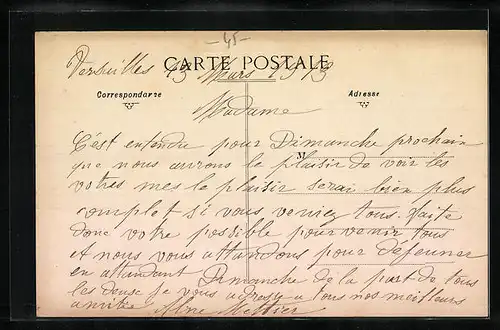 45
CARTE POSTALE
Versailles 13 Mars 1913
Correspondance
Adresse
Madame
C'est entendu pour Dimanche prochain
M
que nous aurons le plaisir de voir les
votres mes le plaisir serai bien plus
complet si vous veniez tous. faite
donc votre possible pour venir tous
et nous vous attendons pour déjeuner
en attendant Dimanche de la part de tous
les deux je vous adresse a tous nos meilleurs
amitié